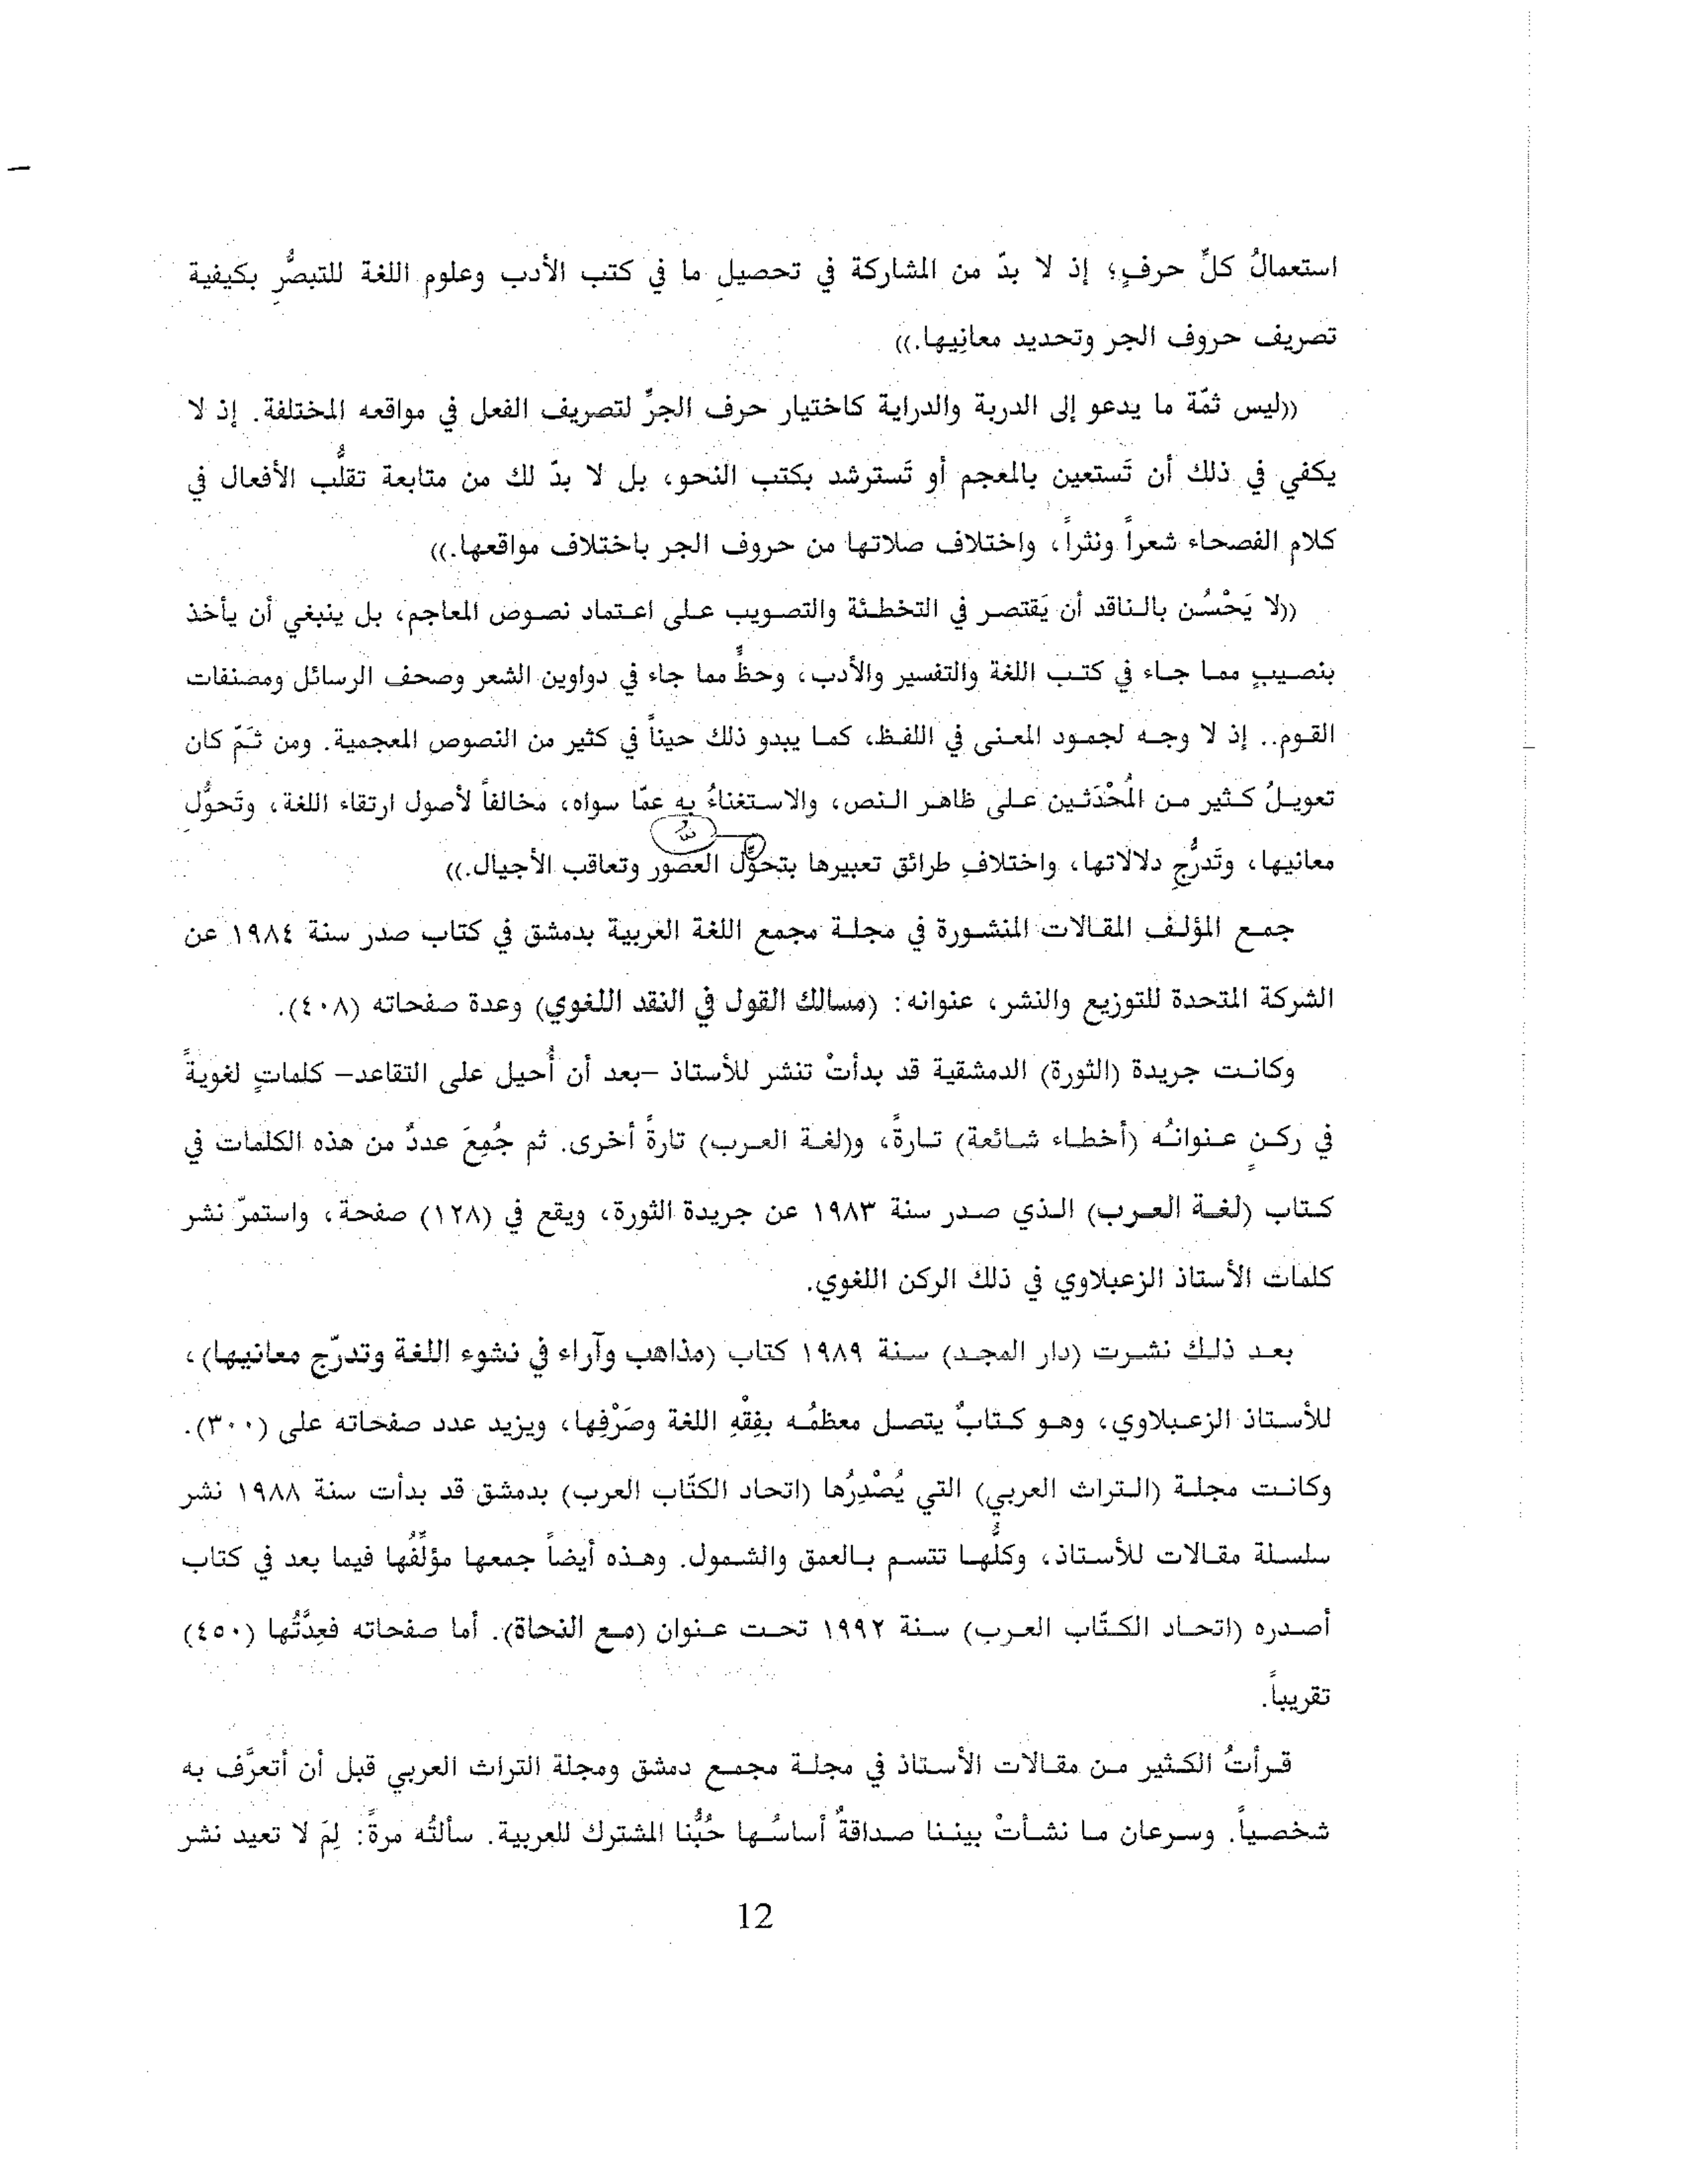 استعمالُ كلِّ حرفٍ؛ إذ لا بدّ من المشاركة في تحصيلِ ما في كتب الأدب وعلوم اللغة للتبصُّرِ بكيفية
تصريف حروف الجر وتحديد معانِيها.))
((ليس ثمّة ما يدعو إلى الدربة والدراية كاختيار حرف الجرِّ لتصريف الفعل في مواقعه المختلفة. إذ لا
يكفي في ذلك أن تَستعين بالمعجم أو تَسترشد بكتب النحو، بل لا بدّ لك من متابعة تقلُّب الأفعال في
كلام الفصحاء شعراً ونثراً، واختلاف صلاتها من حروف الجر باختلاف مواقعها.))
((لا يَحْسُن بالناقد أن يَقتصر في التخطئة والتصويب على اعتماد نصوص المعاجم، بل ينبغي أن يأخذ
بنصيبٍ مما جاء في كتب اللغة والتفسير والأدب، وحظٍّ مما جاء في دواوين الشعر وصحف الرسائل ومصنفات
القوم.. إذ لا وجه لجمود المعنى في اللفظ، كما يبدو ذلك حيناً في كثير من النصوص المعجمية. ومن ثَمّ كان
تعويلُ كثير من المُحْدَثين على ظاهر النص، والاستغناءُ به عمّا سواه، مخالفاً لأصول ارتقاء اللغة، وتَحوُّل
معانيها، وتَدرُّجِ دلالاتها، واختلافِ طرائق تعبيرها بتحوُّل العصور وتعاقب الأجيال.))
جمع المؤلف المقالات المنشورة في مجلة مجمع اللغة العربية بدمشق في كتاب صدر سنة ١٩٨٤ عن
الشركة المتحدة للتوزيع والنشر، عنوانه: (مسالك القول في النقد اللغوي) وعدة صفحاته (٤٠٨).
وكانت جريدة (الثورة) الدمشقية قد بدأتْ تنشر للأستاذ –بعد أن أُحيل على التقاعد– كلماتٍ لغويةً
في ركنٍ عنوانُه (أخطاء شائعة) تارةً، و(لغة العرب) تارةً أخرى. ثم جُمِعَ عددٌ من هذه الكلمات في
كتاب (لغة العرب) الذي صدر سنة ١٩٨٣ عن جريدة الثورة، ويقع في (١٢٨) صفحة، واستمرّ نشر
كلمات الأستاذ الزعبلاوي في ذلك الركن اللغوي.
بعد ذلك نشرت (دار المجد) سنة ١٩٨٩ كتاب (مذاهب وآراء في نشوء اللغة وتدرّج معانيها)،
للأستاذ الزعبلاوي، وهو كتابٌ يتصل معظمُه بفِقْهِ اللغة وصَرْفِها، ويزيد عدد صفحاته على (٣٠٠).
وكانت مجلة (التراث العربي) التي يُصْدِرُها (اتحاد الكتّاب العرب) بدمشق قد بدأت سنة ١٩٨٨ نشر
سلسلة مقالات للأستاذ، وكلُّها تتسم بالعمق والشمول. وهذه أيضاً جمعها مؤلِّفُها فيما بعد في كتاب
أصدره (اتحاد الكتّاب العرب) سنة ١٩٩٢ تحت عنوان (مع النحاة). أما صفحاته فعِدَّتُها (٤٥٠)
تقريباً.
قرأتُ الكثير من مقالات الأستاذ في مجلة مجمع دمشق ومجلة التراث العربي قبل أن أتعرَّف به
شخصياً. وسرعان ما نشأتْ بيننا صداقةٌ أساسُها حُبُّنا المشترك للعربية. سألتُه مرةً: لِمَ لا تعيد نشر
12